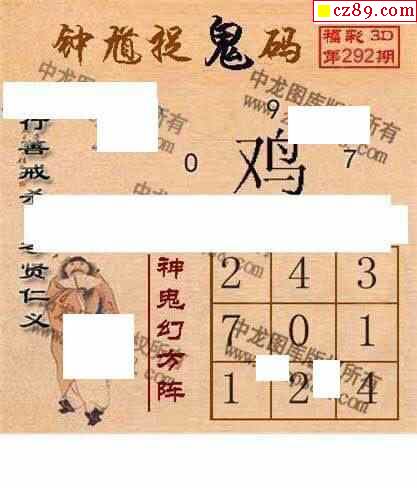 cz89.com
钟馗捉鬼码
福彩3D
第292期
9
鸡
0
7
行善戒杀
贤仁义
神鬼幻方阵
2 4 3
7 0 1
1 2 4
中龙图库版权所有